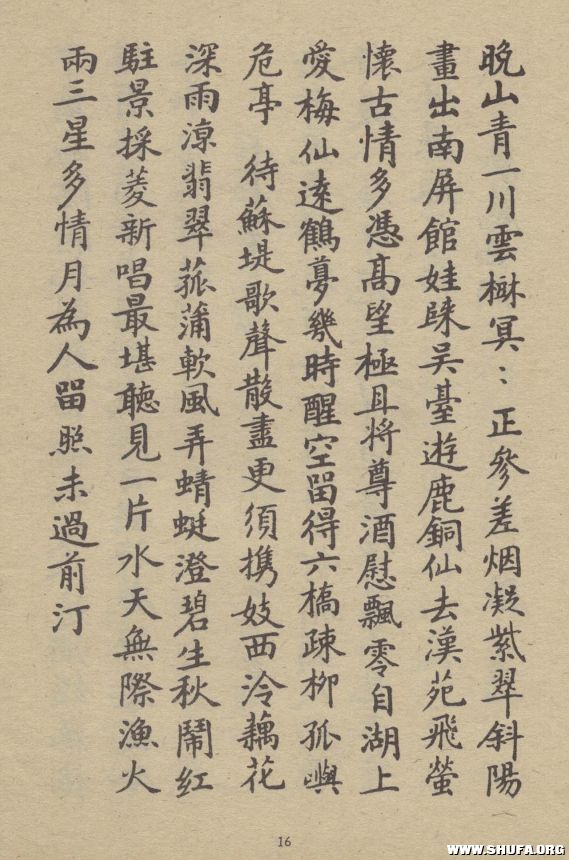 晚山青一川雲樹冥：正參差烟凝紫翠斜陽
畫出南屏館娃歸吳臺遊鹿銅仙去漢苑飛螢
懷古情多憑高望極且將尊酒慰飄零自湖上
愛梅仙遠鶴夢幾時醒空留得六橋疎柳孤嶼
危亭　待蘇堤歌聲散盡更須携妓西泠藕花
深雨涼翡翠菰蒲軟風弄蜻蜓澄碧生秋鬧紅
駐景採菱新唱最堪聽見一片水天無際漁火
兩三星多情月為人留照未過前汀
16
WWW.SHUFA.ORG